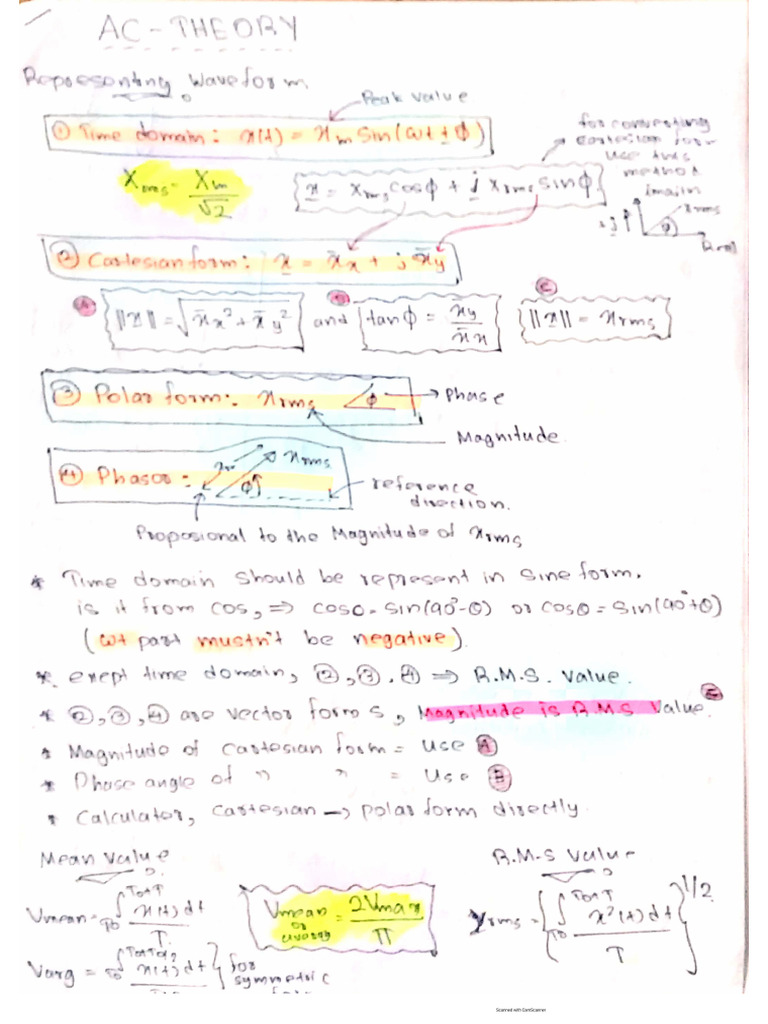 AC - THEORY
Representing Waveform.
Peak value
① Time domain: x(t) = xm Sin(ωt ± ϕ)
for converting
cartesian form
use this
method
Xrms = Xm/√2
x = xrms cosϕ + j xrms sinϕ
imagin
+j
xrms
ϕ
Real
② Cartesian form: x = x̄x + j x̄y
A
||x|| = √(x̄x² + x̄y²)
and
B
tanϕ = xy/x̄x
C
||x|| = xrms
③ Polar form:- xrms ∠ϕ
Phase
Magnitude
④ Phasor:
xrms
ϕ
reference
direction.
Proposional to the Magnitude of xrms
* Time domain should be represent in sine form.
is it from cos, ⇒ cosθ = sin(90°-θ) or cosθ = sin(90°+θ)
(ωt part mustn't be negative).
* exept time domain, ②, ③, ④ ⇒ R.M.S. value.
* ②, ③, ④ are vector forms, Magnitude is R.M.S value. C
* Magnitude of cartesian form = use A
* Phase angle of " " = Use B
* Calculator, cartesian → polar form directly.
Mean value
R.M.S value
Vmean = ∫To^To+T x(t) dt / T
Vmean or avarag = 2Vmax/π
xrms = {∫To^To+T x²(t) dt / T}^1/2
Varg = ∫To^To+T/2 x(t) dt
for
symmetric
Scanned with CamScanner